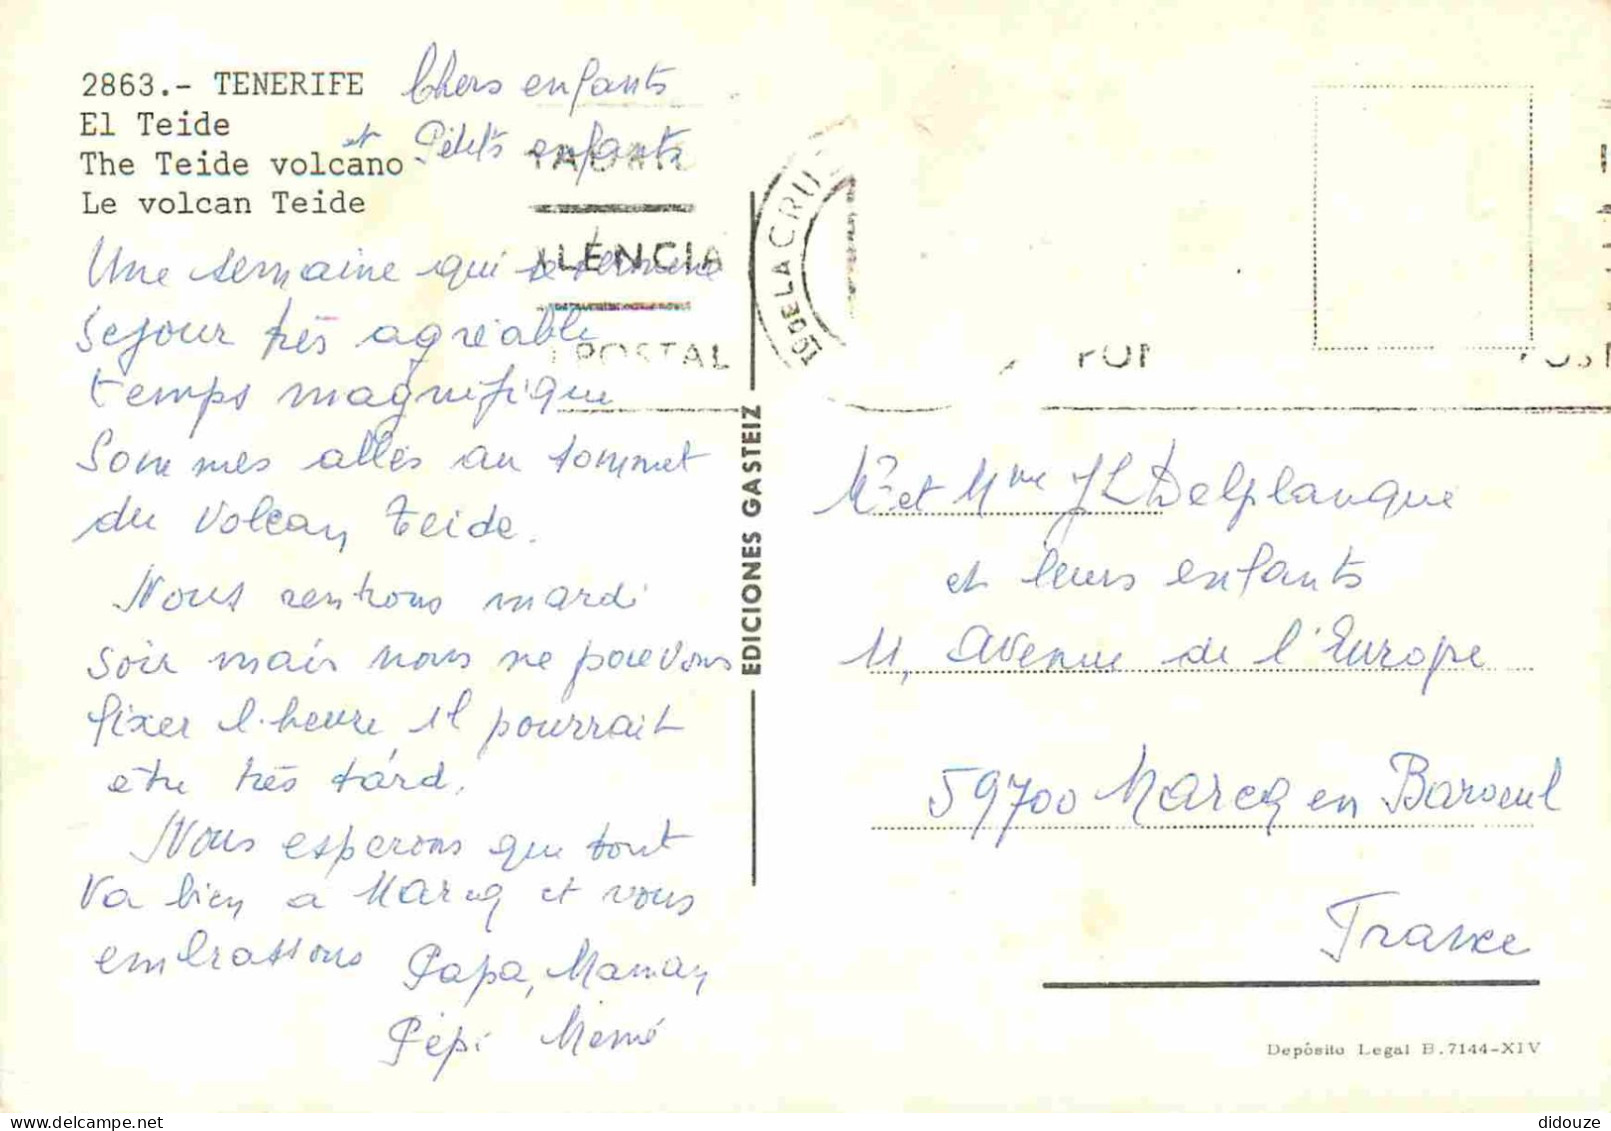 2863.- TENERIFE
El Teide
The Teide volcano
Le volcan Teide
Chers enfants
et Petits enfants
Une semaine qui se termine
Sejour très agréable
temps magnifique
Sommes allés au sommet
du Volcan Teide.
Nous rentrons mardi
soir mais nous ne pouvons
fixer l'heure il pourrait
être très tard.
Nous esperons que tout
va bien a Marcq et vous
embrassons
Papa, Maman
Pépé Mémé
LENCIA
POSTAL
DE LA CRU
EDICIONES GASTEIZ
Mr et Mme JL Delplanque
et leurs enfants
11, Avenue de l'Europe
59700 Marcq en Baroeul
France
Depósito Legal B.7144-XIV
didouze